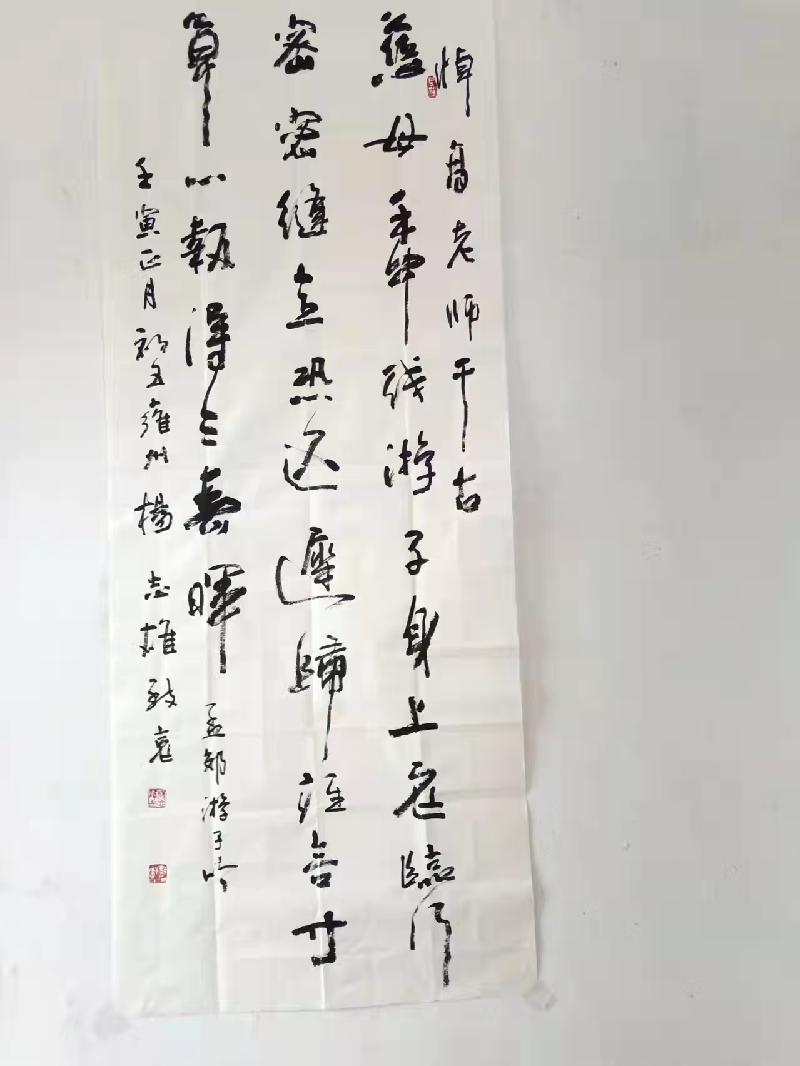 悼高老师千古
慈母手中线游子身上衣臨行
密密縫意恐迟遲歸谁言寸
草心報得三春暉
孟郊游子吟
壬寅正月初五雍州楊志雄致哀